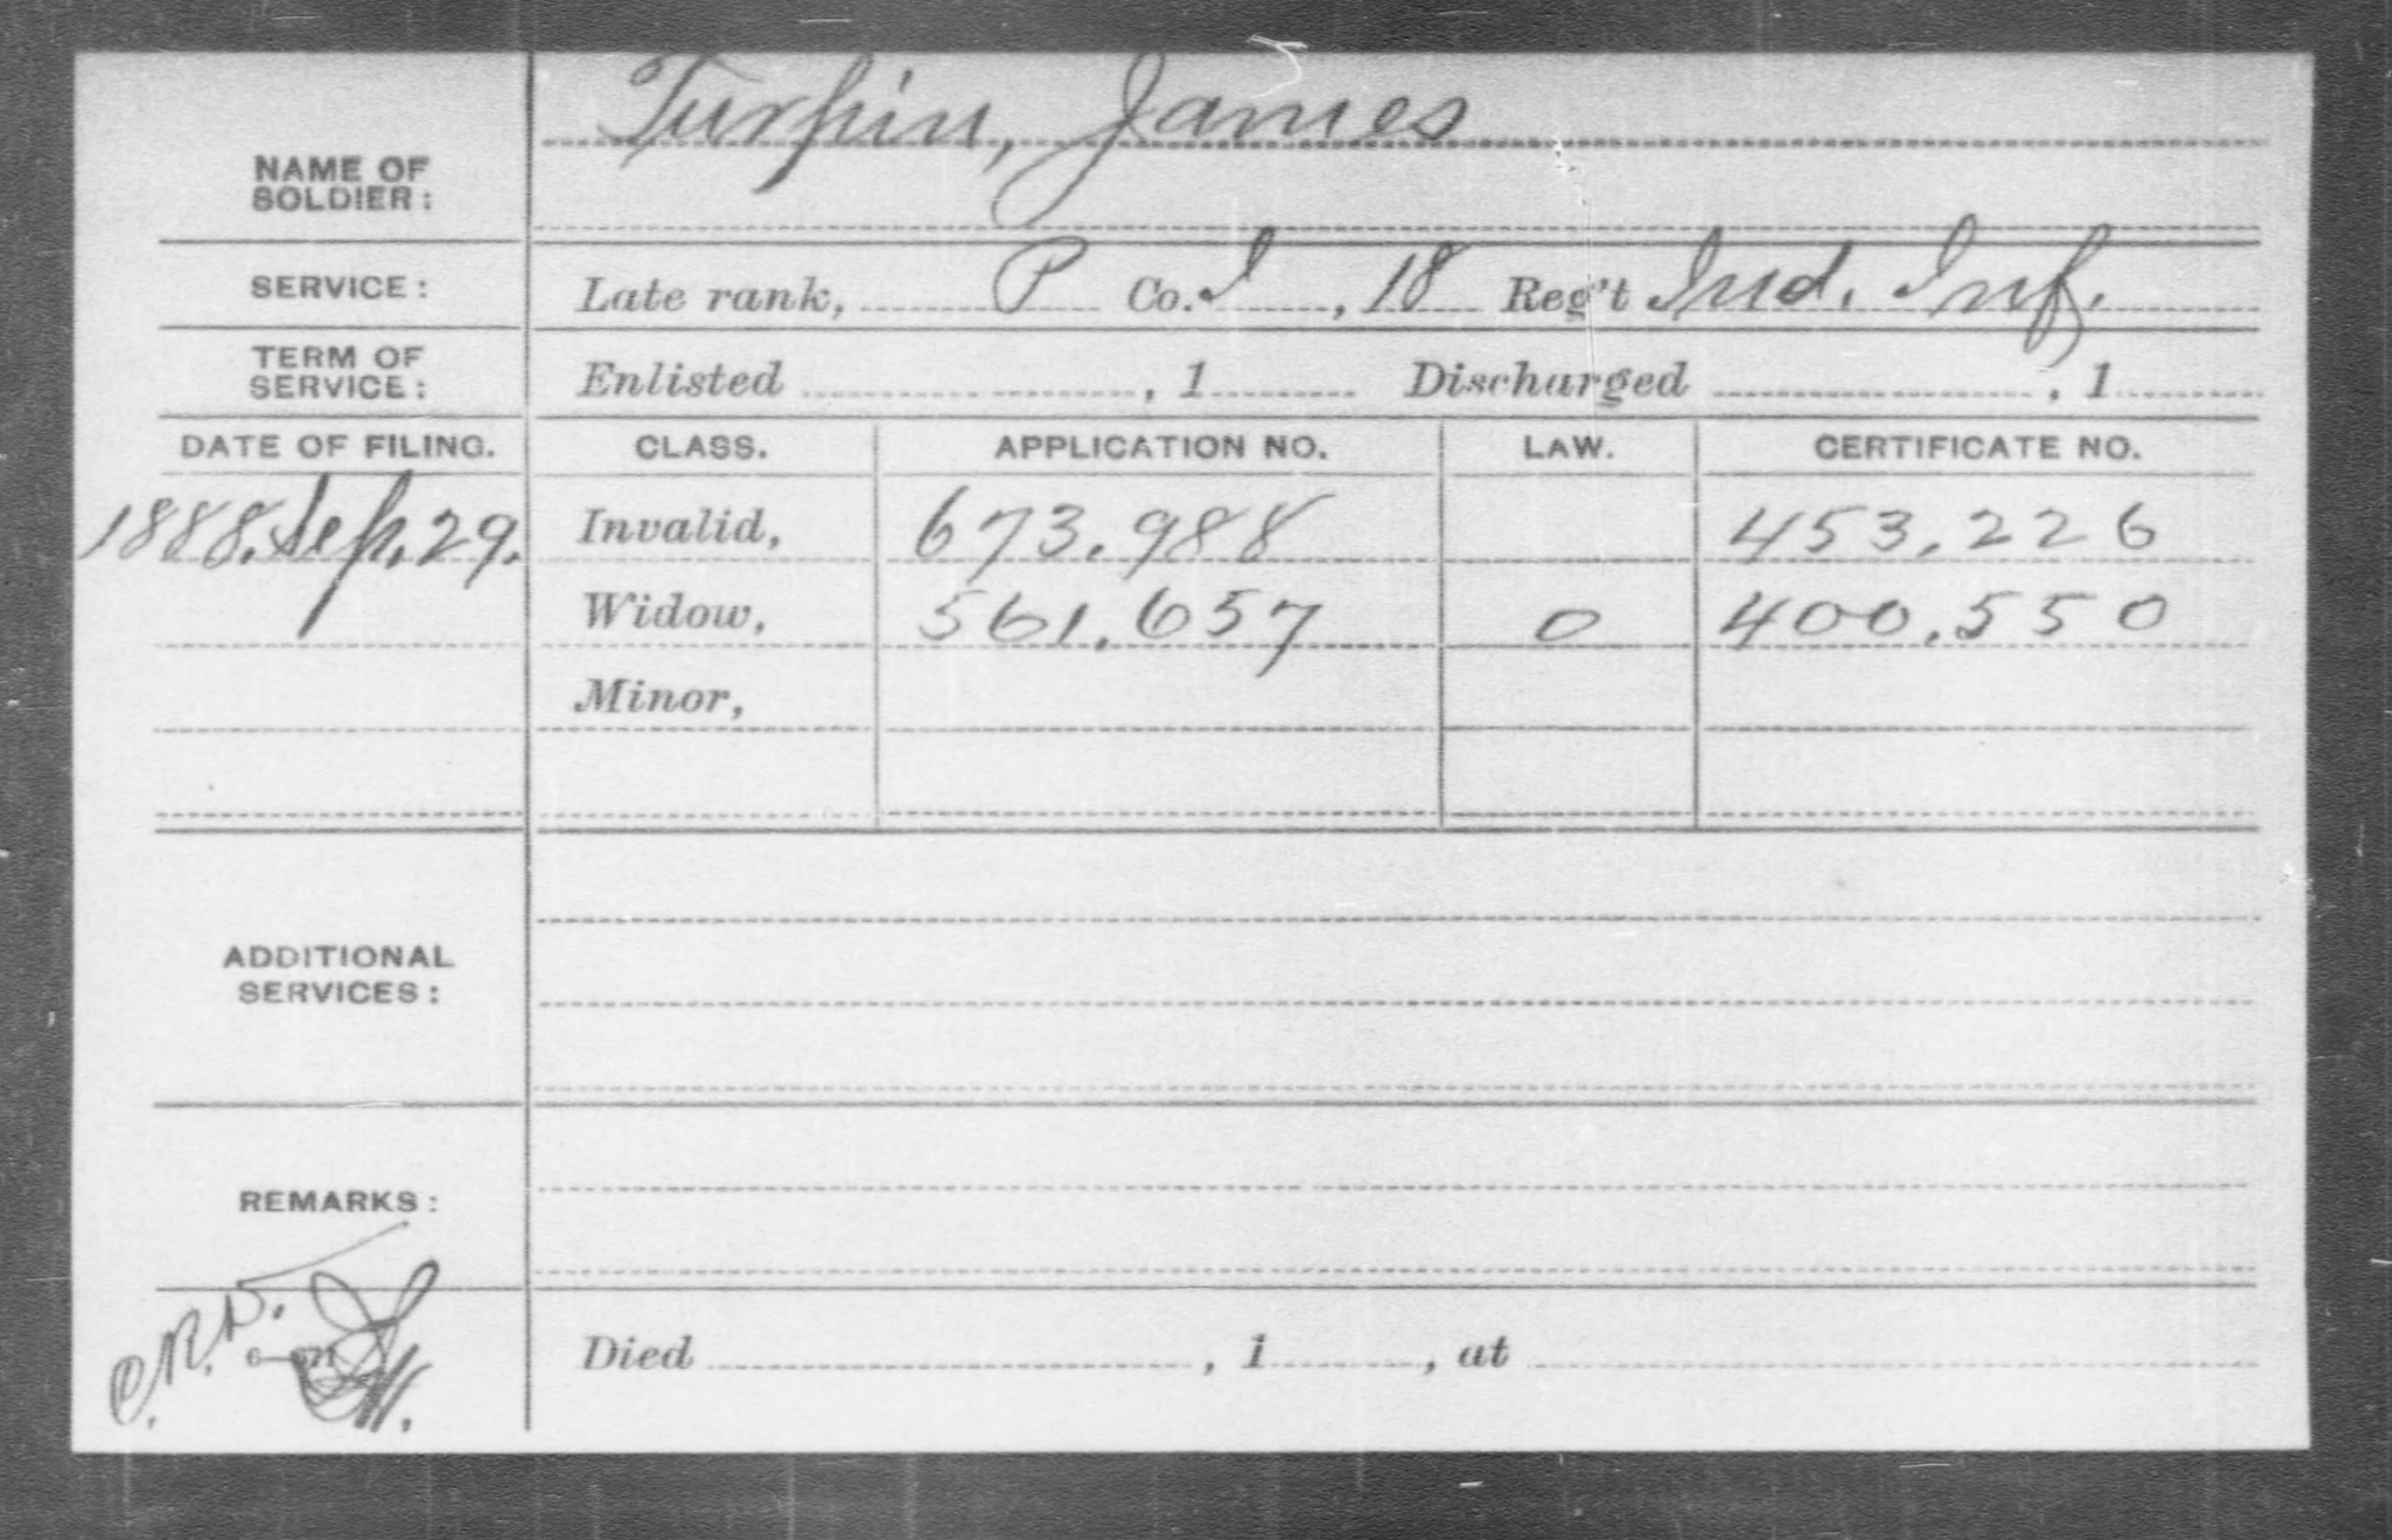 Turpin, James
NAME OF
SOLDIER:
SERVICE: Late rank, P Co. I, 18 Reg't Ind. Inf.
TERM OF
SERVICE: Enlisted , 1 Discharged , 1
DATE OF FILING. CLASS. APPLICATION NO. LAW. CERTIFICATE NO.
1888. Sep. 29. Invalid, 673.988 453.226
Widow, 561.657 0 400.550
Minor,
ADDITIONAL
SERVICES:
REMARKS:
Died , 1 , at